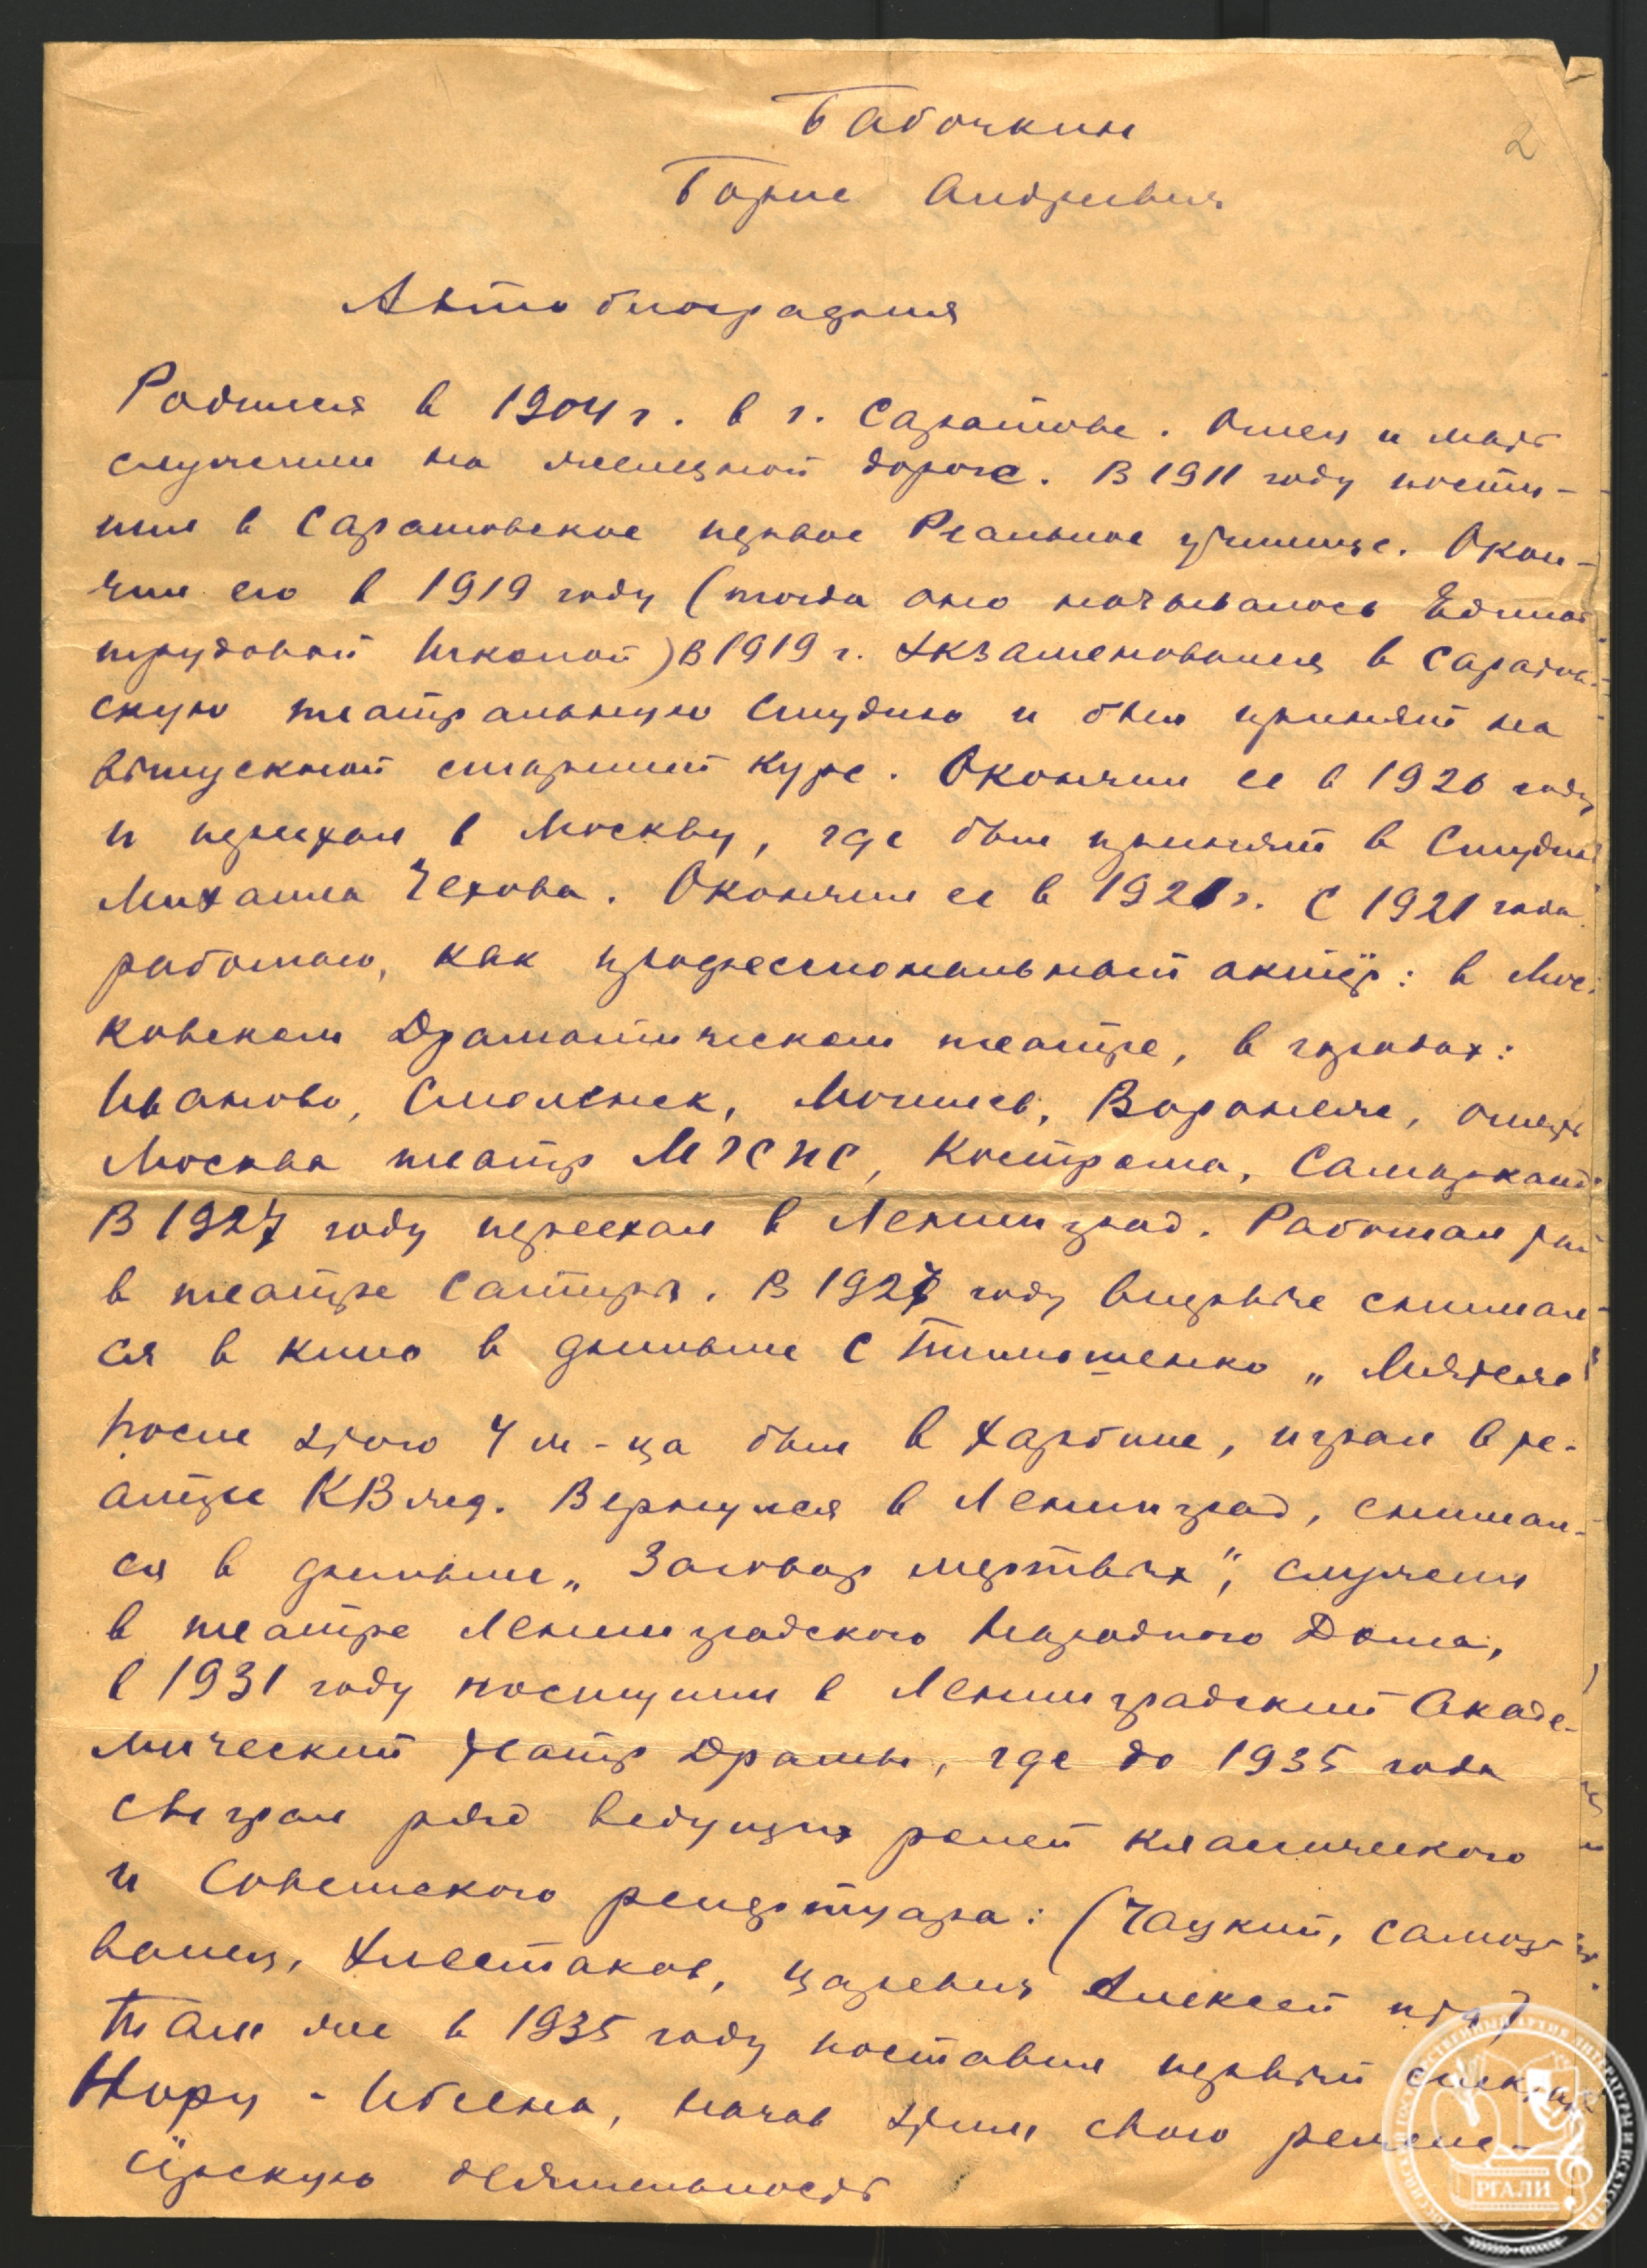 Бабочкин
2
Борис Андреевич
Автобиография
Родился в 1904 г. в г. Саратове. Отец и мать
служили на железной дороге. В 1911 году посту-
пил в Саратовское первое Реальное училище. Окон-
чил его в 1919 году (тогда оно называлось Единой
трудовой школой) В 1919 г. экзаменовался в Саратов-
скую театральную студию и был принят на
выпускной старший курс. Окончил ее в 1920 году
и переехал в Москву, где был принят в Студию
Михаила Чехова. Окончил ее в 1921 г. С 1921 года
работаю, как профессиональный актёр: в Мос-
ковском Драматическом театре, в городах:
Иваново, Смоленск, Могилев, Воронеж, опять
Москва театр МГСПС, Кострома, Самарканд.
В 1927 году переехал в Ленинград. Работал
в театре Сатиры. В 192 году впервые снимал-
ся в кино в фильме С Тимошенко „Мятеж"
После этого 4 м-ца был в Харбине, играл в те-
атре КВжд. Вернулся в Ленинград, снимал-
ся в фильме „Заговор мертвых", служил
в театре Ленинградского Народного Дома,
в 1931 году поступил в Ленинградский Акаде-
мический театр Драмы, где до 1935 года
сыграл ряд ведущих ролей классического
и Советского репертуара: (Чацкий, Самоз-
ванец, Хлестаков, царевич Алексей и т д)
Там же в 1935 году поставил первый спектакль
Нору - Ибсена, начав этим свою режисс-
ёрскую деятельность
РГАЛИ
РОССИЙСКИЙ ГОСУДАРСТВЕННЫЙ АРХИВ ЛИТЕРАТУРЫ И ИСКУССТВА